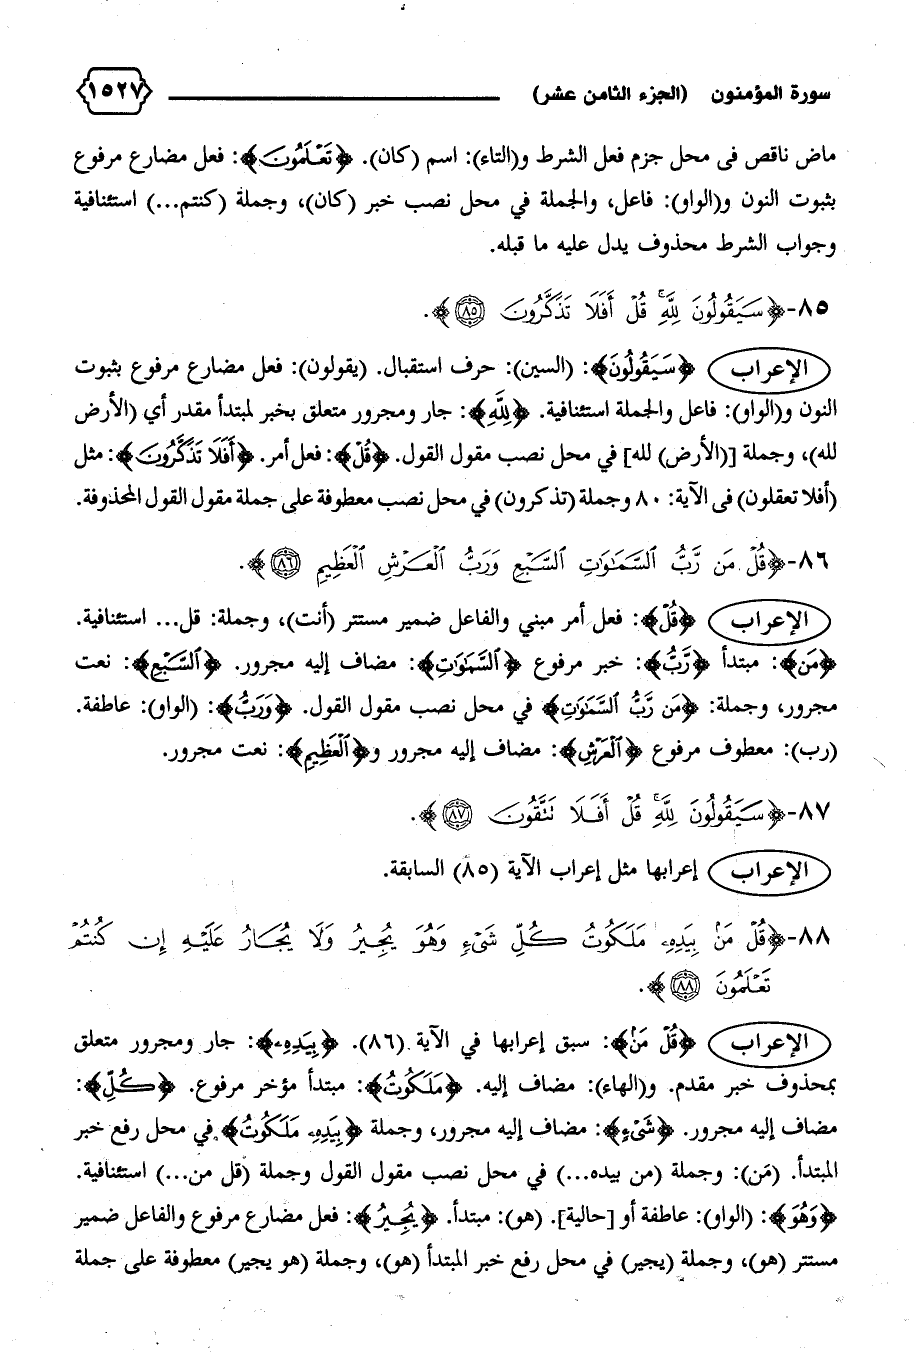 سورة المؤمنون (الجزء الثامن عشر) ١٥٢٧
ماض ناقص فى محل جزم فعل الشرط و(التاء): اسم (كان). ﴿تَعْلَمُونَ﴾: فعل مضارع مرفوع
بثبوت النون و(الواو): فاعل، والجملة في محل نصب خبر (كان)، وجملة (كنتم...) استئنافية
وجواب الشرط محذوف يدل عليه ما قبله.
٨٥-﴿سَيَقُولُونَ لِلَّهِ ۚ قُلْ أَفَلَا تَذَكَّرُونَ ٨٥﴾.
الإعراب ﴿سَيَقُولُونَ﴾: (السين): حرف استقبال. (يقولون): فعل مضارع مرفوع بثبوت
النون و(الواو): فاعل والجملة استئنافية. ﴿لِلَّهِ﴾: جار ومجرور متعلق بخبر لمبتدأ مقدر أي (الأرض
لله)، وجملة [(الأرض) لله] في محل نصب مقول القول. ﴿قُلْ﴾: فعل أمر. ﴿أَفَلَا تَذَكَّرُونَ﴾: مثل
(أفلا تعقلون) فى الآية: ٨٠ وجملة (تذكرون) في محل نصب معطوفة على جملة مقول القول المحذوفة.
٨٦-﴿قُلْ مَن رَّبُّ السَّمَاوَاتِ السَّبْعِ وَرَبُّ الْعَرْشِ الْعَظِيمِ ٨٦﴾.
الإعراب ﴿قُلْ﴾: فعل أمر مبني والفاعل ضمير مستتر (أنت)، وجملة: قل... استئنافية.
﴿مَن﴾: مبتدأ ﴿رَبُّ﴾: خبر مرفوع ﴿السَّمَاوَاتِ﴾: مضاف إليه مجرور. ﴿السَّبْعِ﴾: نعت
مجرور، وجملة: ﴿مَن رَّبُّ السَّمَاوَاتِ﴾ في محل نصب مقول القول. ﴿وَرَبُّ﴾: (الواو): عاطفة.
(رب): معطوف مرفوع ﴿الْعَرْشِ﴾: مضاف إليه مجرور و﴿الْعَظِيمِ﴾: نعت مجرور.
٨٧-﴿سَيَقُولُونَ لِلَّهِ ۚ قُلْ أَفَلَا تَتَّقُونَ ٨٧﴾.
الإعراب إعرابها مثل إعراب الآية (٨٥) السابقة.
٨٨-﴿قُلْ مَنْ بِيَدِهِ مَلَكُوتُ كُلِّ شَىْءٍ وَهُوَ يُجِيرُ وَلَا يُجَارُ عَلَيْهِ إِن كُنتُمْ
تَعْلَمُونَ ٨٨﴾.
الإعراب ﴿قُلْ مَنْ﴾: سبق إعرابها في الآية (٨٦). ﴿بِيَدِهِ﴾: جار ومجرور متعلق
بمحذوف خبر مقدم. و(الهاء): مضاف إليه. ﴿مَلَكُوتُ﴾: مبتدأ مؤخر مرفوع. ﴿كُلِّ﴾:
مضاف إليه مجرور. ﴿شَىْءٍ﴾: مضاف إليه مجرور، وجملة ﴿بِيَدِهِ مَلَكُوتُ﴾ في محل رفع خبر
المبتدأ. (مَن): وجملة (من بيده...) في محل نصب مقول القول وجملة (قل من...) استئنافية.
﴿وَهُوَ﴾: (الواو): عاطفة أو [حالية]. (هو): مبتدأ. ﴿يُجِيرُ﴾: فعل مضارع مرفوع والفاعل ضمير
مستتر (هو)، وجملة (يجير) في محل رفع خبر المبتدأ (هو)، وجملة (هو يجير) معطوفة على جملة